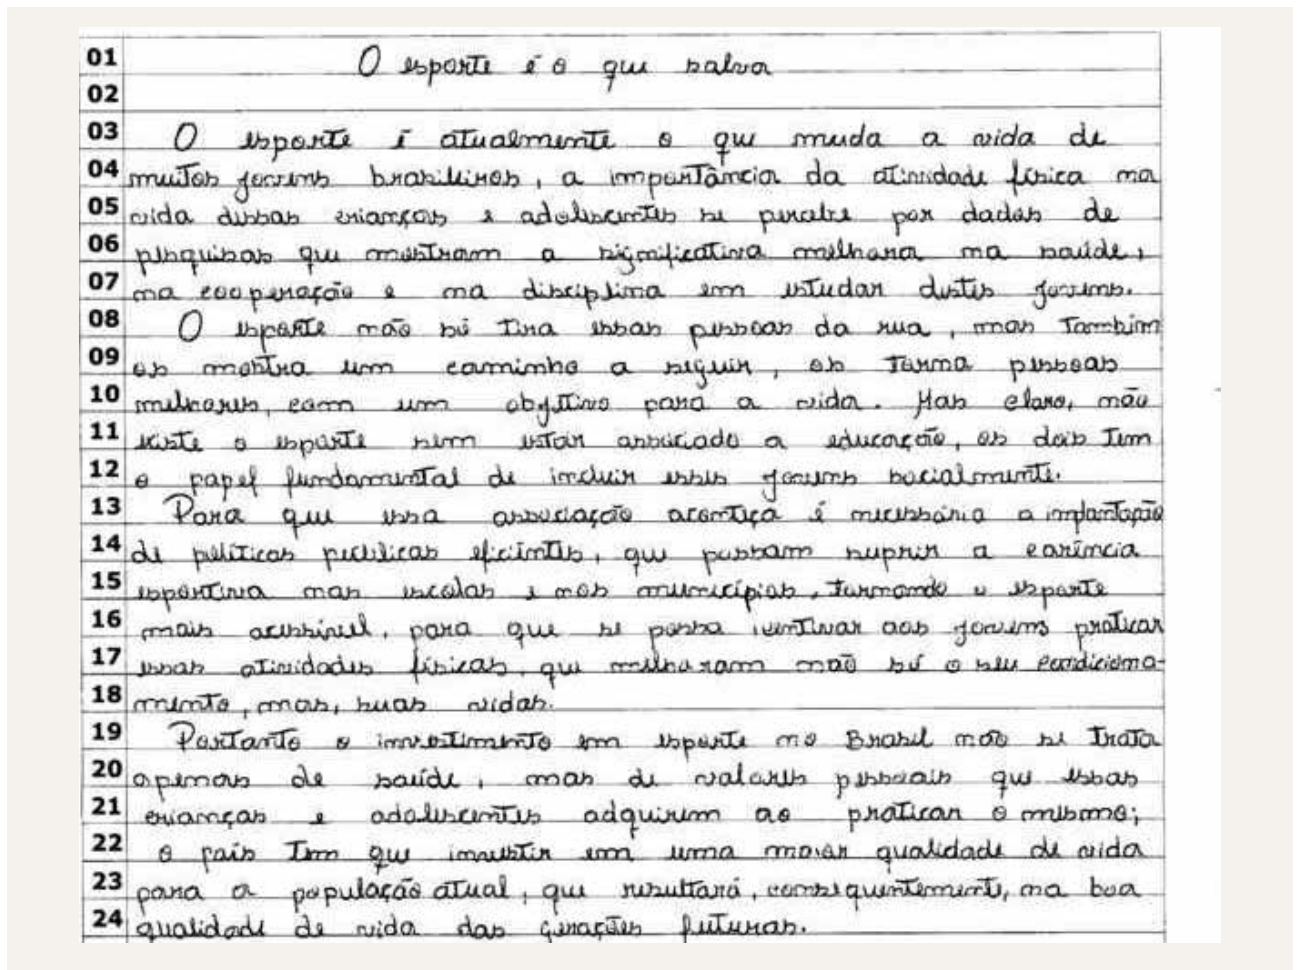 01 O esporte é o que salva
02
03 O esporte é atualmente o que muda a vida de
04 muitos jovens brasileiros, a importância da atividade física na
05 vida dessas crianças e adolescentes se percebe por dados de
06 pesquisas que mostram a significativa melhora na saúde,
07 na cooperação e na disciplina em estudar destes jovens.
08 O esporte não só tira essas pessoas da rua, mas também
09 os mostra um caminho a seguir, os torna pessoas
10 melhores, com um objetivo para a vida. Mas claro, não
11 existe o esporte sem estar associado a educação, os dois tem
12 o papel fundamental de incluir esses jovens socialmente.
13 Para que essa associação aconteça é necessária a implantação
14 de políticas publicas eficientes, que possam suprir a carência
15 esportiva nas escolas e nos municípios, tornando o esporte
16 mais acessível, para que se possa icentivar aos jovens praticar
17 essas atividades físicas, que melhoram não só o seu condiciona-
18 mento, mas, suas vidas.
19 Portanto o investimento em esporte no Brasil não se trata
20 apenas de saúde, mas de valores pessoais que essas
21 crianças e adolescentes adquirem ao praticar o mesmo;
22 o país tem que investir em uma maior qualidade de vida
23 para a população atual, que resultará, consequentemente, na boa
24 qualidade de vida das gerações futuras.